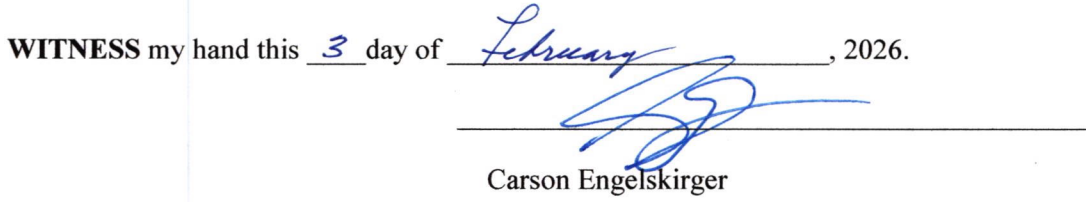 WITNESS my hand this 3 day of February, 2026.
Carson Engelskirger